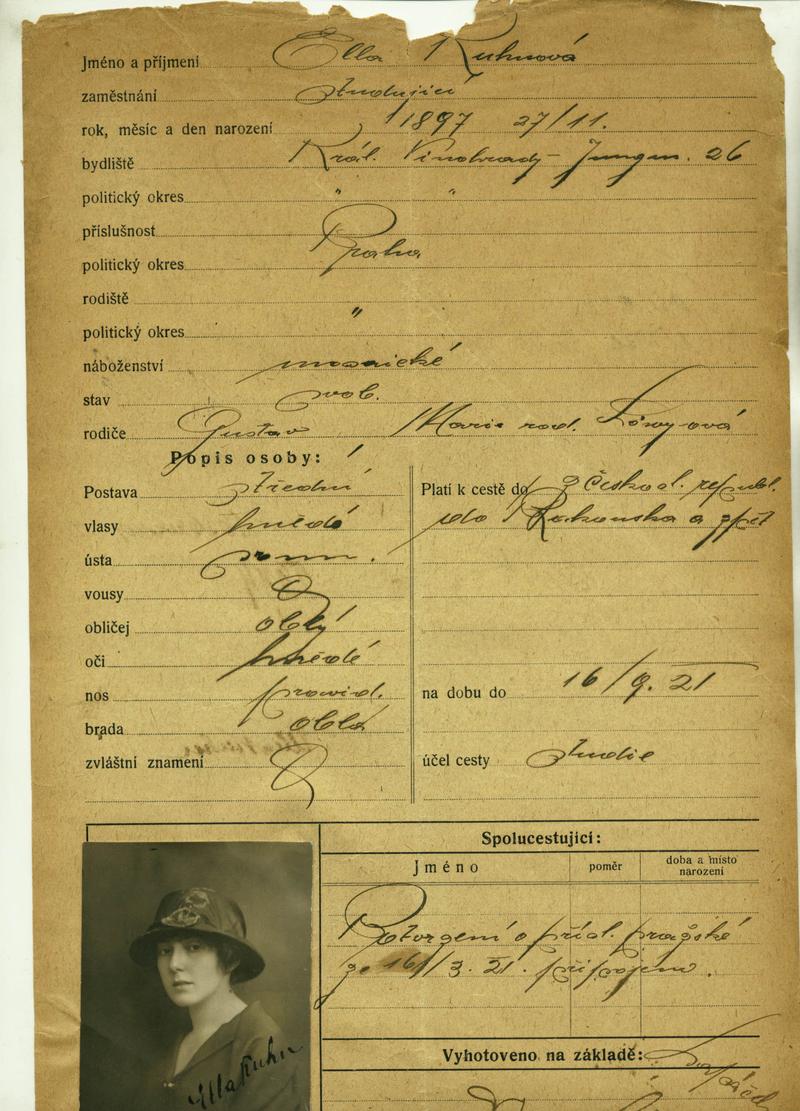 Jméno a příjmení Ella Kuhnová
zaměstnání studující
rok, měsíc a den narození 1897 27/11.
bydliště Král. Vinohrady - Jungm. 26
politický okres " "
příslušnost
politický okres Praha
rodiště
politický okres "
náboženství mosaické
stav svob.
rodiče Gustav / Marie rod. Löwyová
Popis osoby:
Postava střední
vlasy hnědé
ústa
vousy
obličej oblý
oči hnědé
nos pravid.
brada oblá
zvláštní znamení
Platí k cestě do z Českosl. republ.
do Rakouska a zpět
na dobu do 16/9. 21
účel cesty studie
Spolucestující:
Jméno poměr doba a místo narození
Potvrzení o přísl. pražské
ze 16/3. 21. připojeno.
Vyhotoveno na základě:
Ella Kuhn